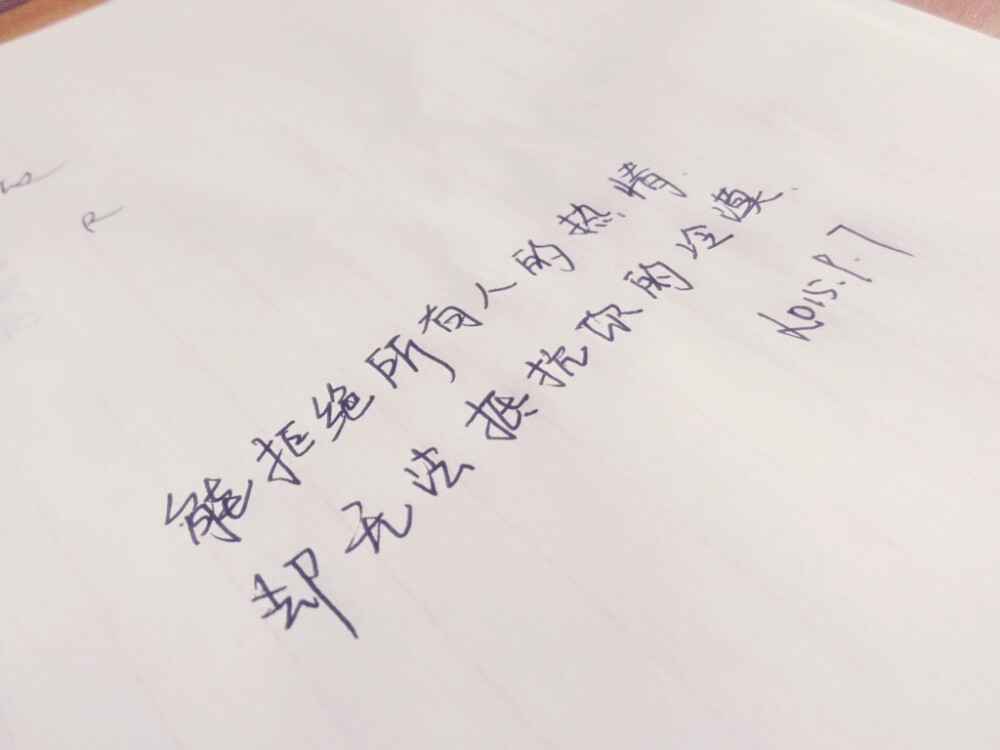 能拒绝所有人的热情
却无法抵抗你的冷漠
2015.9.7